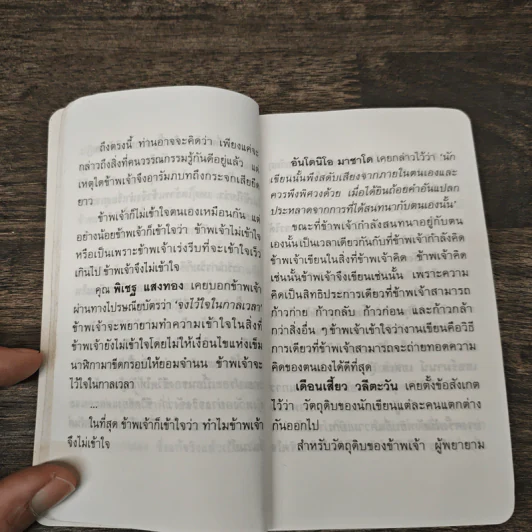 ถึงตรงนี้ ท่านอาจจะคิดว่า เพียงแค่จะ
กล่าวถึงสิ่งที่คนวรรณกรรมรู้กันดีอยู่แล้ว แต่
เหตุใดข้าพเจ้าจึงอารัมภบทถึงกระจกเสียยืด
ยาว
ข้าพเจ้าก็ไม่เข้าใจตนเองเหมือนกัน แต่
อย่างน้อยข้าพเจ้าก็เข้าใจว่า ข้าพเจ้าไม่เข้าใจ
หรือเป็นเพราะข้าพเจ้าเร่งรีบที่จะเข้าใจเร็ว
เกินไป ข้าพเจ้าจึงไม่เข้าใจ
คุณ พิเชฐ แสงทอง เคยบอกข้าพเจ้า
ผ่านทางไปรษณียบัตรว่า 'จงไว้ใจในกาลเวลา'
ข้าพเจ้าจะพยายามทำความเข้าใจในสิ่งที่
ข้าพเจ้ายังไม่เข้าใจโดยไม่ให้เงื่อนไขแห่งเข็ม
นาฬิกามาขีดกรอบให้ยอมจำนน ข้าพเจ้าจะ
ไว้ใจในกาลเวลา
...
ในที่สุด ข้าพเจ้าก็เข้าใจว่า ทำไมข้าพเจ้า
จึงไม่เข้าใจ
อันโตนิโอ มาชาโด เคยกล่าวไว้ว่า 'นัก
เขียนนั้นพึงสดับเสียงจากภายในตนเองและ
ควรพึงพิศวงด้วย เมื่อได้ยินถ้อยคำอันแปลก
ประหลาดจากการที่ได้สนทนากับตนเองนั้น'
ขณะที่ข้าพเจ้ากำลังสนทนาอยู่กับตน
เองนั้นเป็นเวลาเดียวกันกับที่ข้าพเจ้ากำลังคิด
ข้าพเจ้าเขียนในสิ่งที่ข้าพเจ้าคิด ข้าพเจ้าคิด
เช่นนั้นข้าพเจ้าจึงเขียนเช่นนั้น เพราะความ
คิดเป็นสิทธิประการเดียวที่ข้าพเจ้าสามารถ
ก้าวก่าย ก้าวกลับ ก้าวก่อน และก้าวกล้า
กว่าสิ่งอื่น ๆ ข้าพเจ้าเข้าใจว่างานเขียนคือวิธี
การเดียวที่ข้าพเจ้าสามารถจะถ่ายทอดความ
คิดของตนเองได้ดีที่สุด
เดือนเสี้ยว วลีตะวัน เคยตั้งข้อสังเกต
ไว้ว่า วัตถุดิบของนักเขียนแต่ละคนแตกต่าง
กันออกไป
สำหรับวัตถุดิบของข้าพเจ้า ผู้พยายาม